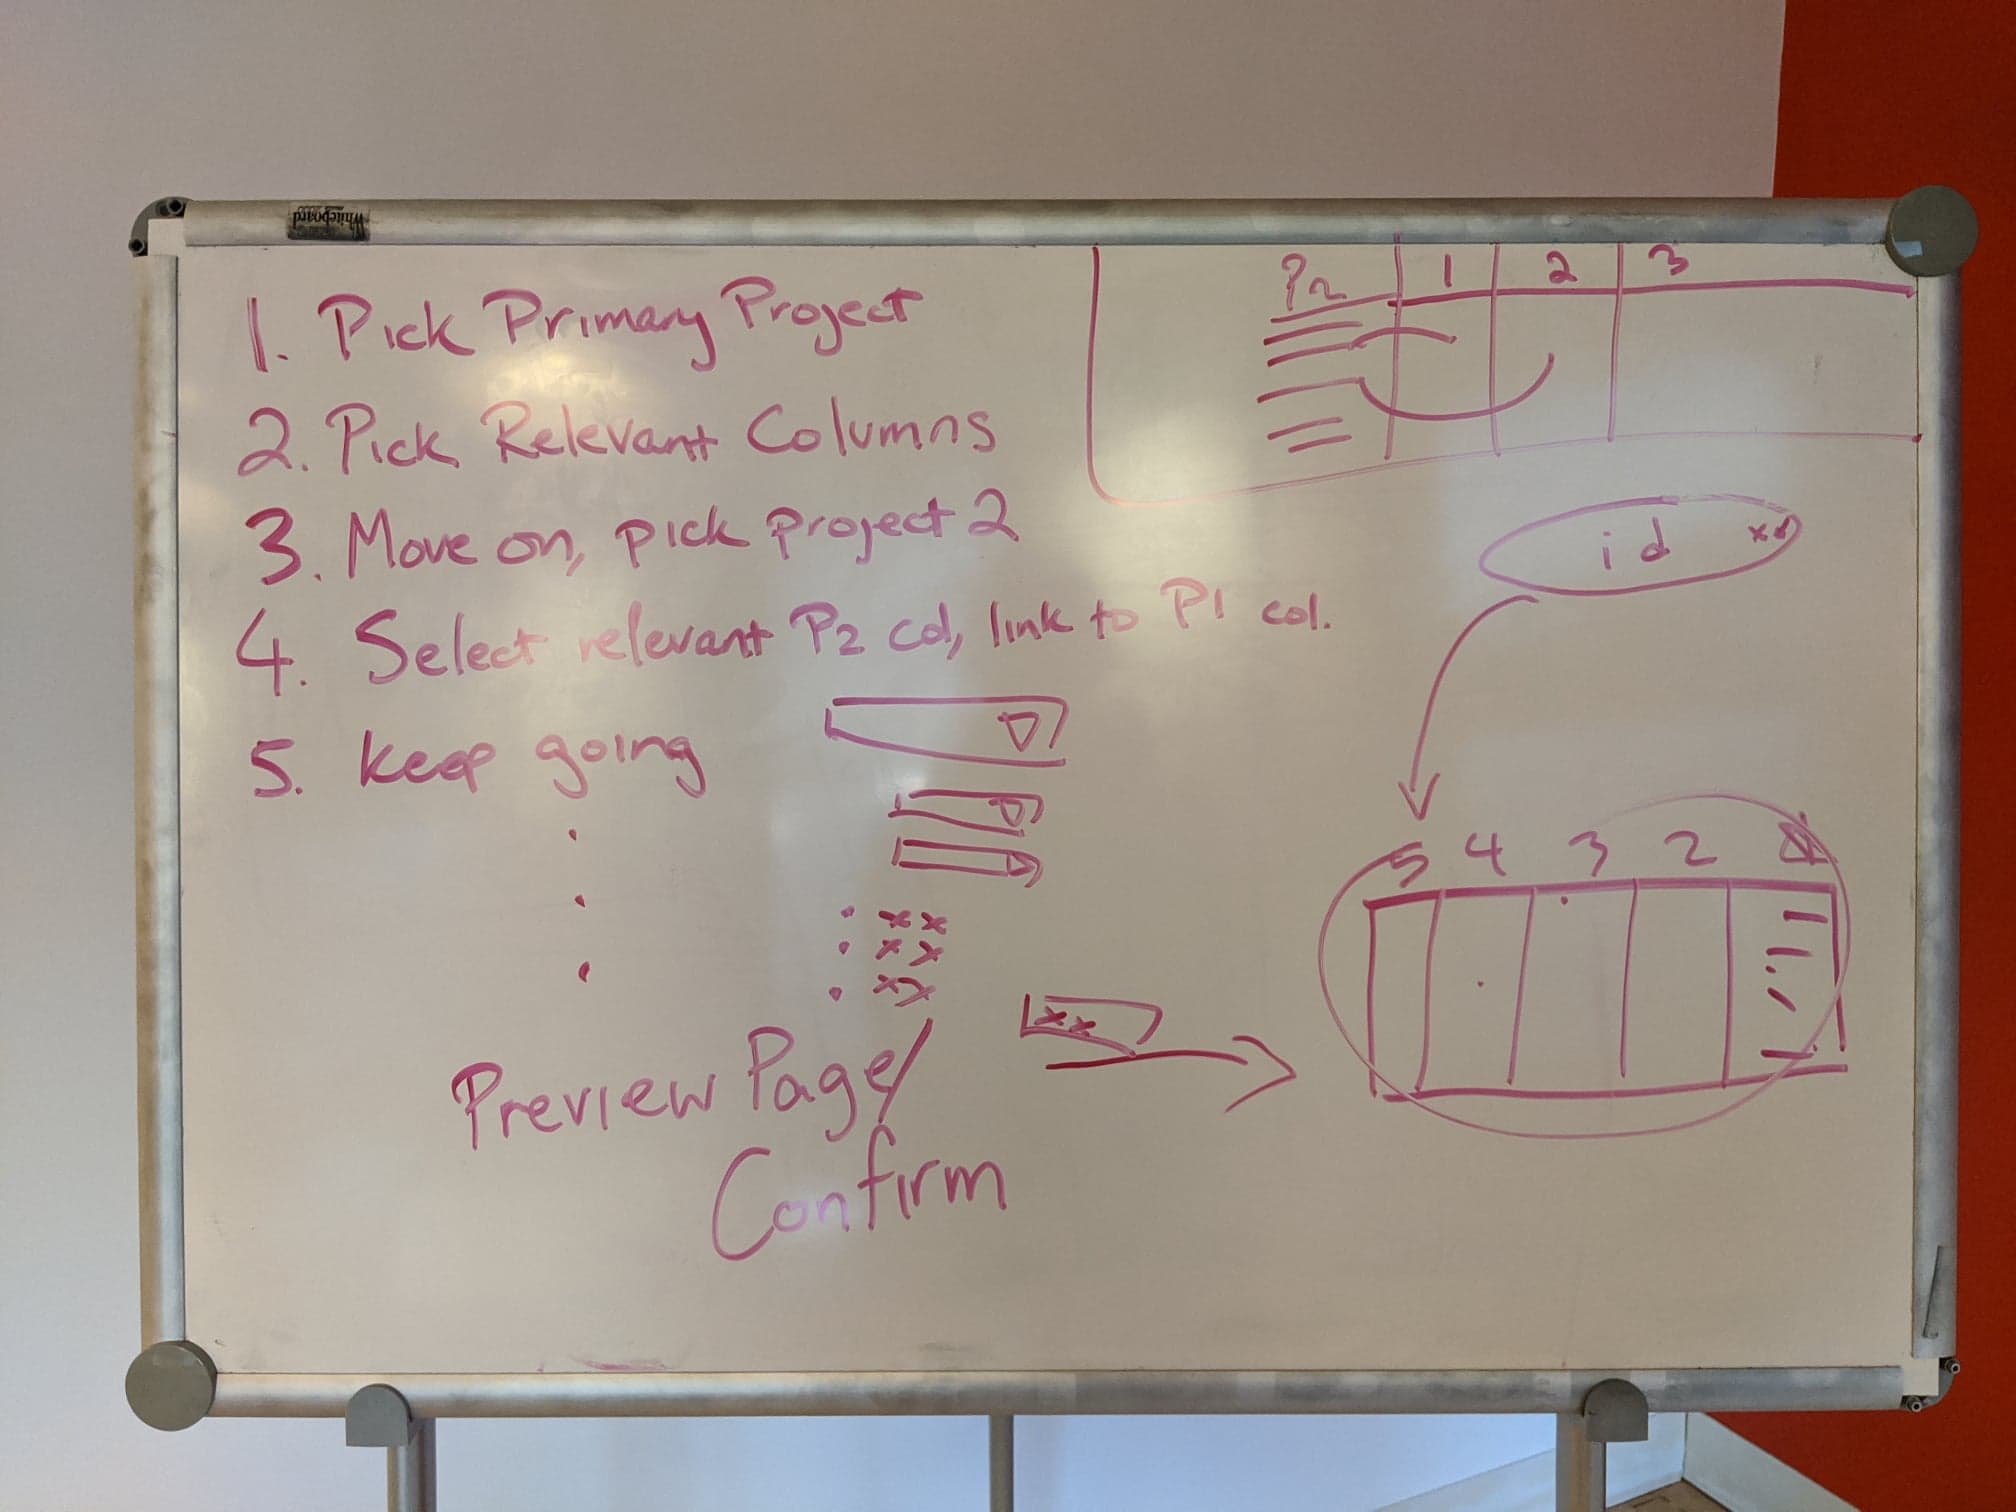 Whiteboard
1. Pick Primary Project
2. Pick Relevant Columns
3. Move on, pick project 2
4. Select relevant P2 col, link to P1 col.
5. keep going
. xx
. xx
. xx
Preview Page/
Confirm
xx
P2 1 2 3
id xx
5 4 3 2